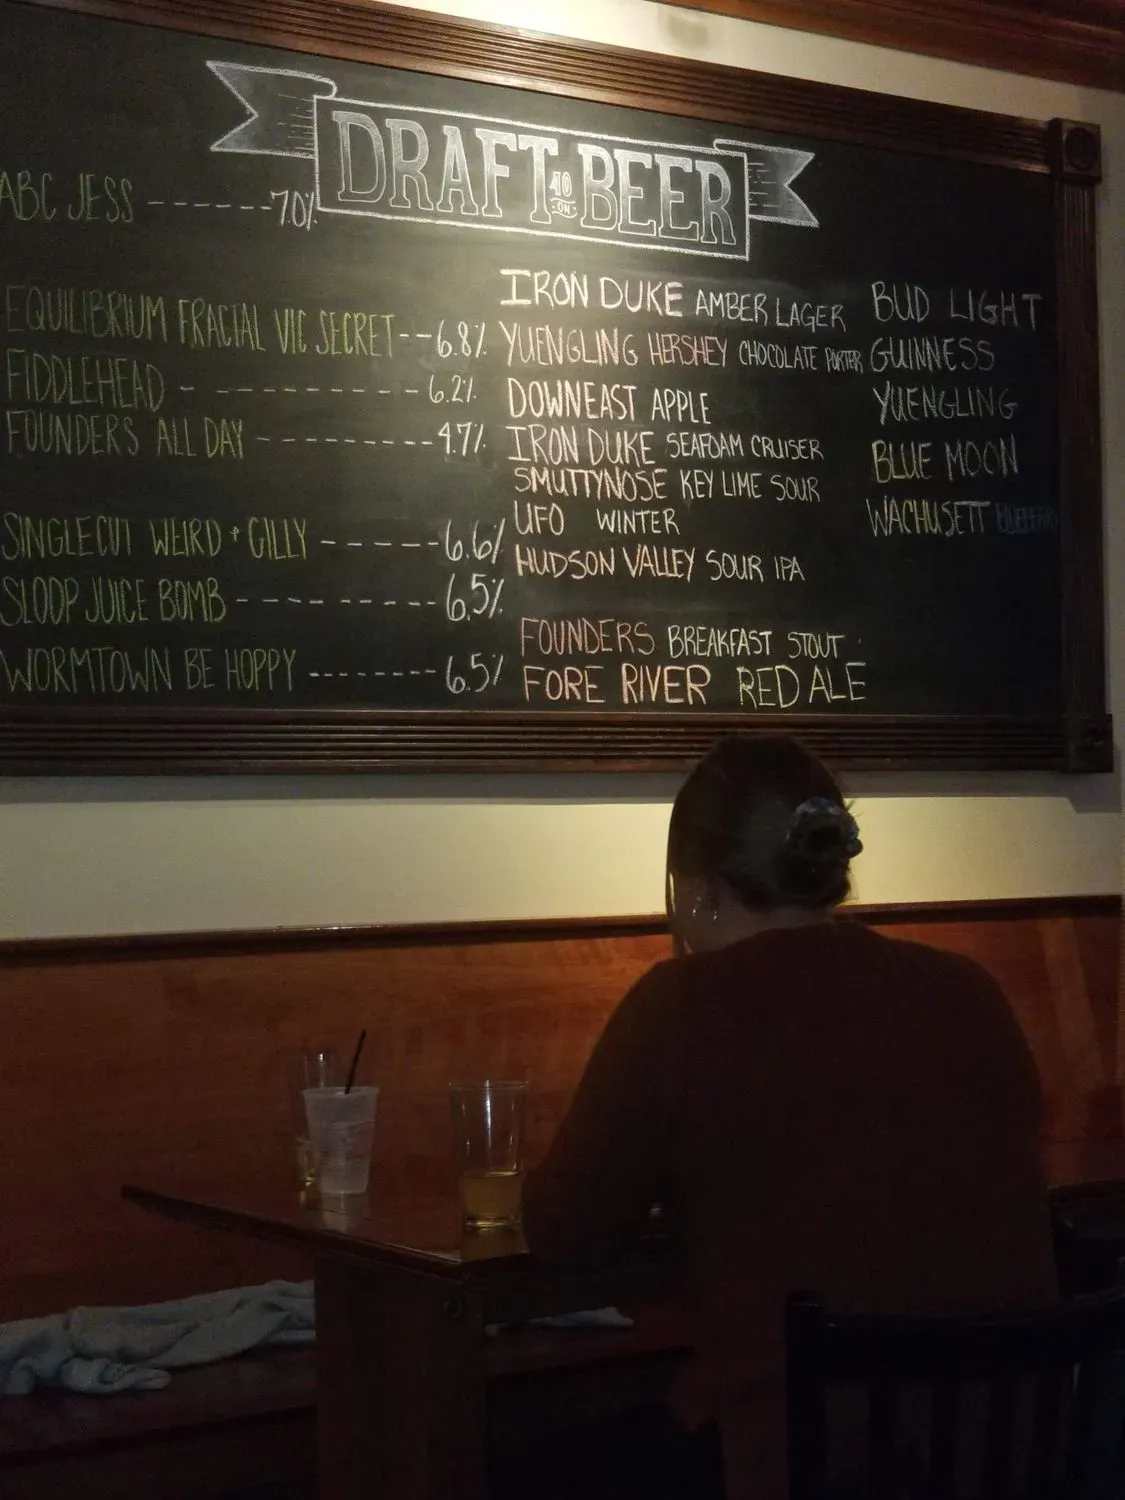 DRAFT 40 ON BEER
ABC JESS ------ 7.0%
EQUILIBRIUM FRACTAL VIC SECRET--6.8%
FIDDLEHEAD - --------- 6.2%
FOUNDERS ALL DAY --------- 4.7%
SINGLECUT WEIRD + GILLY -----6.6%
SLOOP JUICE BOMB --------- 6.5%
WORMTOWN BE HOPPY -------- 6.5%
IRON DUKE AMBER LAGER
YUENGLING HERSHEY CHOCOLATE PORTER
DOWNEAST APPLE
IRON DUKE SEAFOAM CRUISER
SMUTTYNOSE KEY LIME SOUR
UFO WINTER
HUDSON VALLEY SOUR IPA
FOUNDERS BREAKFAST STOUT
FORE RIVER RED ALE
BUD LIGHT
GUINNESS
YUENGLING
BLUE MOON
WACHUSETT BLUEBERRY